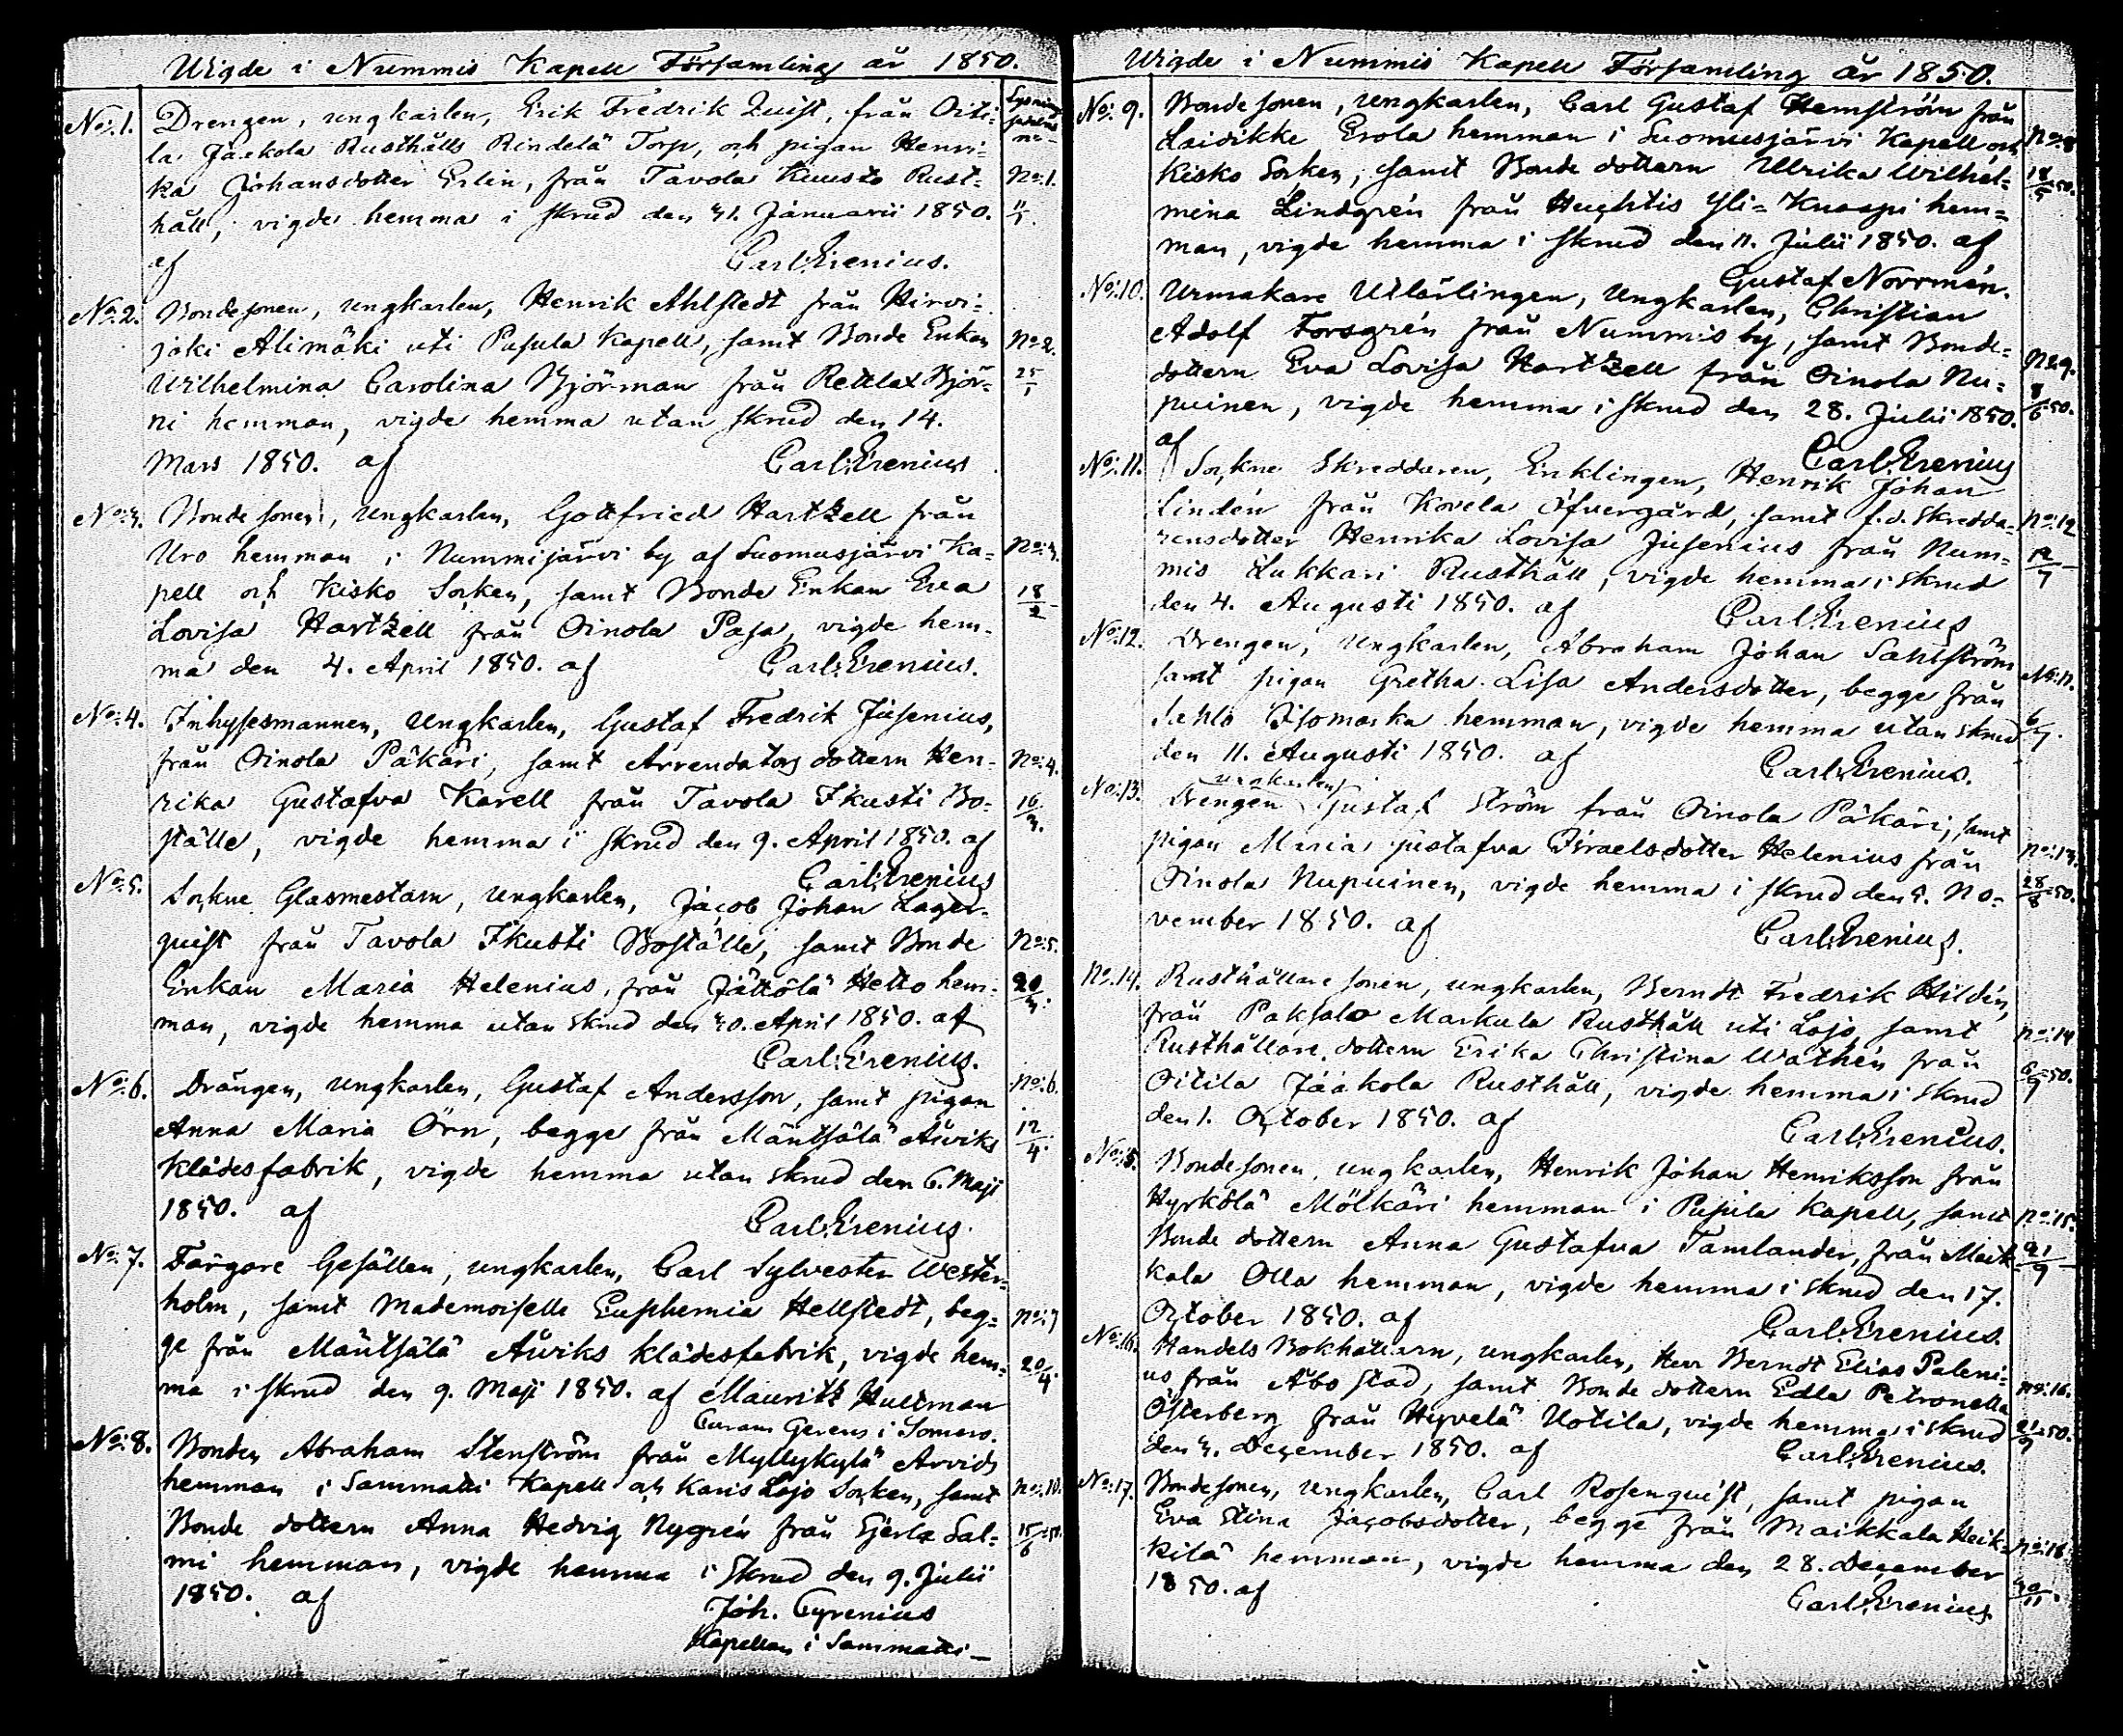 Wigde i Nummis Kapell Församling år 1850.
Lysnings
No: 1. Drengen, ungkarlen, Erik Fredrik Quist, från Oiti-
la Jaakola Rusthålls Rindelä Torp, och pigan Henri-
ka Johansdotter Erlin, från Tavola Kuusto Rust- No: 1.
håll, vigde hemma i skrud den 31. Januarii 1850. 11/1.
af Carl Erenius.
No: 2. Bondesonen, ungkarlen, Henrik Ahlstedt från Hirvi-
joki Alimäki uti Pusula Kapell, samt Bonde Enkan No: 2.
Wilhelmina Carolina Björman från Rettlax Björ- 25/1
ni hemman, vigde hemma utan skrud den 14.
Mars 1850. af Carl Erenius
No: 3. Bonde sonen, ungkarlen, Gottfried Hartzell från
Uro hemman i Nummijärvi by af Suomusjärvi Ka- No: 3.
pell och Kisko Socken, samt Bonde Enkan Eva 18/2
Lovisa Hartzell från Oinola Pasa, vigde hem-
ma den 4. April 1850. af Carl Erenius.
No: 4. Inhysesmannen, ungkarlen, Gustaf Fredrik Jusenius,
från Oinola Päkäri, samt Arrendators dottern Hen- No: 4.
rika Gustafva Karell från Tavola Ikusti Bo- 16/3.
ställe, vigde hemma i skrud den 9. April 1850. af
Carl Erenius
No: 5. Sockne Glasmestarn, ungkarlen, Jacob Johan Lager-
quist från Tavola Ikusti Boställe, samt Bonde No: 5.
Enkan Maria Helenius, från Jättölä Hetto hem- 20/3.
man, vigde hemma utan skrud den 30. April 1850. af
Carl Erenius.
No: 6. Drängen, ungkarlen, Gustaf Andersson, samt pigan No: 6.
Anna Maria Örn, begge från Mäntsälä Åviks 12/4.
klädesfabrik, vigde hemma utan skrud den 6. Maji
1850. af Carl Erenius.
No: 7. Färgare Gesällen, ungkarlen, Carl Sylvester Wester-
holm, samt Mademoiselle Euphemia Hellstedt, beg- No: 7
ge från Mäntsälä Åviks klädesfabrik, vigde hem- 20/4.
ma i skrud den 9. Maji 1850. af Mauritz Hultman
Curam Gerens i Somero.
No: 8. Bonden Abraham Stenström från Myllykylä Arvids
hemman i Sammatti Kapell och Karis Lojo Socken, samt No: 10.
Bonde dottern Anna Hedvig Nygrén från Gerla Sal- 15/6 50.
mi hemman, vigde hemma i skrud den 9. Julii
1850. af Joh. Cyrenius
Kapellan i Sammatti
Wigde i Nummis Kapell Församling år 1850.
No: 9. Bonde sonen, ungkarlen, Carl Gustaf Hemström från
Laidikke Erola hemman i Suomusjärvi Kapell och No: 8
Kisko Socken, samt Bonde dottern Ulrika Wilhel- 18/5 50.
mina Lindgrén från Huhtis Yli-Knaapi hem-
man, vigde hemma i skrud den 11. Julii 1850. af
Gustaf Norrmén.
No: 10. Urmakare Utlärlingen, Ungkarlen, Christian
Adolf Forsgrén från Nummis by, samt Bonde-
dottern Eva Lovisa Hartzell från Oinola Nu- No: 9.
puinen, vigde hemma i skrud den 28. Julii 1850. 8/6 50.
af Carl Erenius
No: 11. Sockne Skreddaren, Enklingen, Henrik Johan
Lindén från Kovela Öfvergård, samt f.d. Skredda- No: 12
rensdotter Henrika Lovisa Jusenius från Num- 12/7
mis Lukkari Rusthåll, vigde hemma i skrud
den 4. Augusti 1850. af Carl Erenius
No: 12. Drengen, Ungkarlen, Abraham Johan Sahlström
samt pigan Gretha Lisa Andersdotter, begge från No: 11.
Sahlo Isomaska hemman, vigde hemma utan skrud 6/7.
den 11. Augusti 1850. af Carl Erenius.
ungkarlen
No: 13. Drengen Gustaf Ström från Oinola Päkäri, samt
pigan Maria Gustafva Israelsdotter Helenius från No: 13.
Oinola Nupuinen, vigde hemma i skrud den 5. No- 28/8 50.
vember 1850. af Carl Erenius.
No: 14. Rusthållare sonen, ungkarlen, Berndt Fredrik Hildén,
från Paksalo Markula Rusthåll uti Lojo, samt No: 14
Rusthållare dottern Erika Christina Wathén från 6/9 50.
Oitila Jaakola Rusthåll, vigde hemma i skrud
den 1. October 1850. af Carl Erenius.
No: 15. Bondesonen, ungkarlen, Henrik Johan Henriksson från
Hyrkölä Mölkäri hemman i Pusula Kapell, samt No: 15.
Bonde dottern Anna Gustafva Tamlander, från Maik- 21/9
kala Olla hemman, vigde hemma i skrud den 17.
October 1850. af Carl Erenius.
No: 16. Handels Bokhållarn, ungkarlen, Herr Berndt Elias Paleni-
us från Åbo stad, samt Bonde dottern Edla Petronella No: 16.
Österberg från Hyvelä Uotila, vigde hemma i skrud 21/9 50.
den 3. December 1850. af Carl Erenius.
No: 17. Bondesonen, ungkarlen, Carl Rosenquist, samt pigan
Eva Stina Jacobsdotter, begge från Maikkala Heik- No: 18
kilä hemman, vigde hemma den 28. December 30/11.
1850. af Carl Erenius